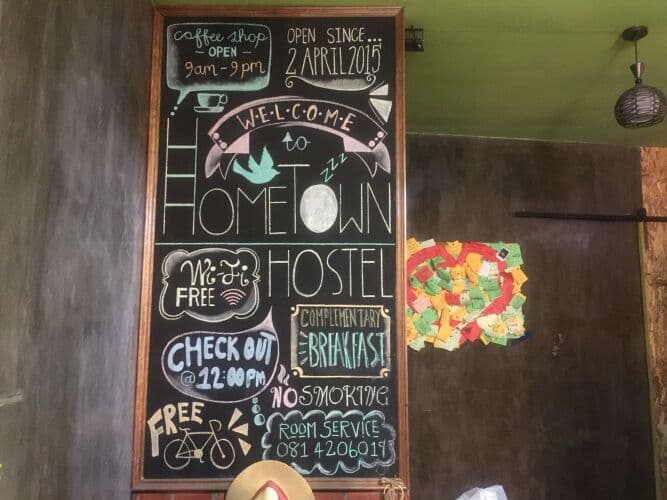 coffee shop
— OPEN —
9am - 9pm
OPEN SINCE...
2 APRIL 2015
W·E·L·C·O·M·E
to
HOMETOWN
zzz
HOSTEL
Wi-Fi
FREE
COMPLEMENTARY
BREAKFAST
CHECK OUT
@ 12:00PM
NO SMOKING
FREE
ROOM SERVICE
081 4206019